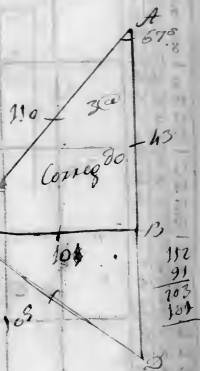 A
67°
110
3@
43
Correg do
B
101
112
91
203
101
105
D